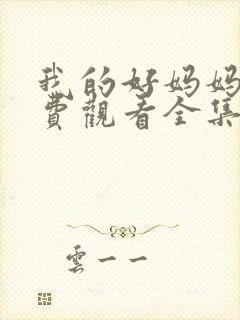 我的好妈妈
费觀看全集
雲一一